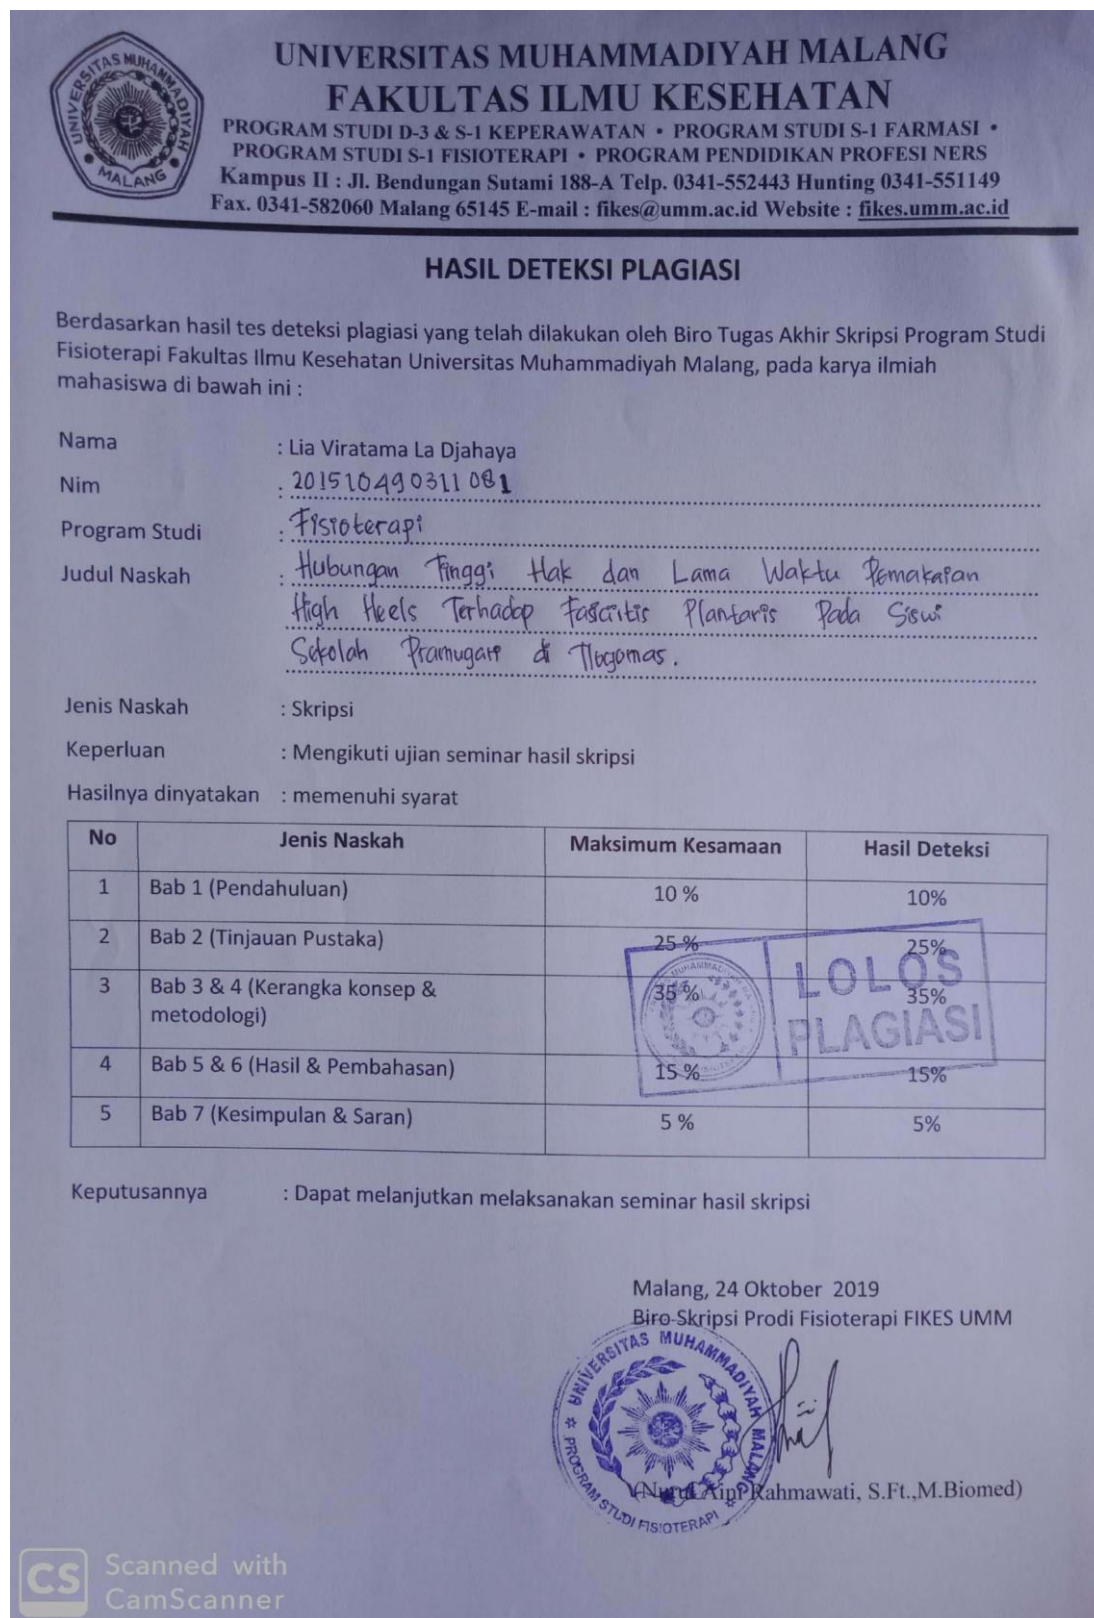 UNIVERSITAS MUHAMMADIYAH MALANG
UNIVERSITAS MUHAMMADIYAH MALANG
FAKULTAS ILMU KESEHATAN
PROGRAM STUDI D-3 & S-1 KEPERAWATAN • PROGRAM STUDI S-1 FARMASI •
PROGRAM STUDI S-1 FISIOTERAPI • PROGRAM PENDIDIKAN PROFESI NERS
Kampus II : Jl. Bendungan Sutami 188-A Telp. 0341-552443 Hunting 0341-551149
Fax. 0341-582060 Malang 65145 E-mail : fikes@umm.ac.id Website : fikes.umm.ac.id
HASIL DETEKSI PLAGIASI
Berdasarkan hasil tes deteksi plagiasi yang telah dilakukan oleh Biro Tugas Akhir Skripsi Program Studi
Fisioterapi Fakultas Ilmu Kesehatan Universitas Muhammadiyah Malang, pada karya ilmiah
mahasiswa di bawah ini :
Nama : Lia Viratama La Djahaya
Nim : 201510490311081
Program Studi : Fisioterapi
Judul Naskah : Hubungan Tinggi Hak dan Lama Waktu Pemakaian
High Heels Terhadap Fascitis Plantaris Pada Siswi
Sekolah Pramugari di Tlogomas.
Jenis Naskah : Skripsi
Keperluan : Mengikuti ujian seminar hasil skripsi
Hasilnya dinyatakan : memenuhi syarat
No Jenis Naskah Maksimum Kesamaan Hasil Deteksi
1 Bab 1 (Pendahuluan) 10 % 10%
2 Bab 2 (Tinjauan Pustaka) 25 % 25%
3 Bab 3 & 4 (Kerangka konsep & metodologi) 35 % 35%
4 Bab 5 & 6 (Hasil & Pembahasan) 15 % 15%
5 Bab 7 (Kesimpulan & Saran) 5 % 5%
LOLOS
PLAGIASI
Keputusannya : Dapat melanjutkan melaksanakan seminar hasil skripsi
Malang, 24 Oktober 2019
Biro Skripsi Prodi Fisioterapi FIKES UMM
UNIVERSITAS MUHAMMADIYAH MALANG
PROGRAM STUDI FISIOTERAPI
(Nurul Aini Rahmawati, S.Ft.,M.Biomed)
CS Scanned with
CamScanner